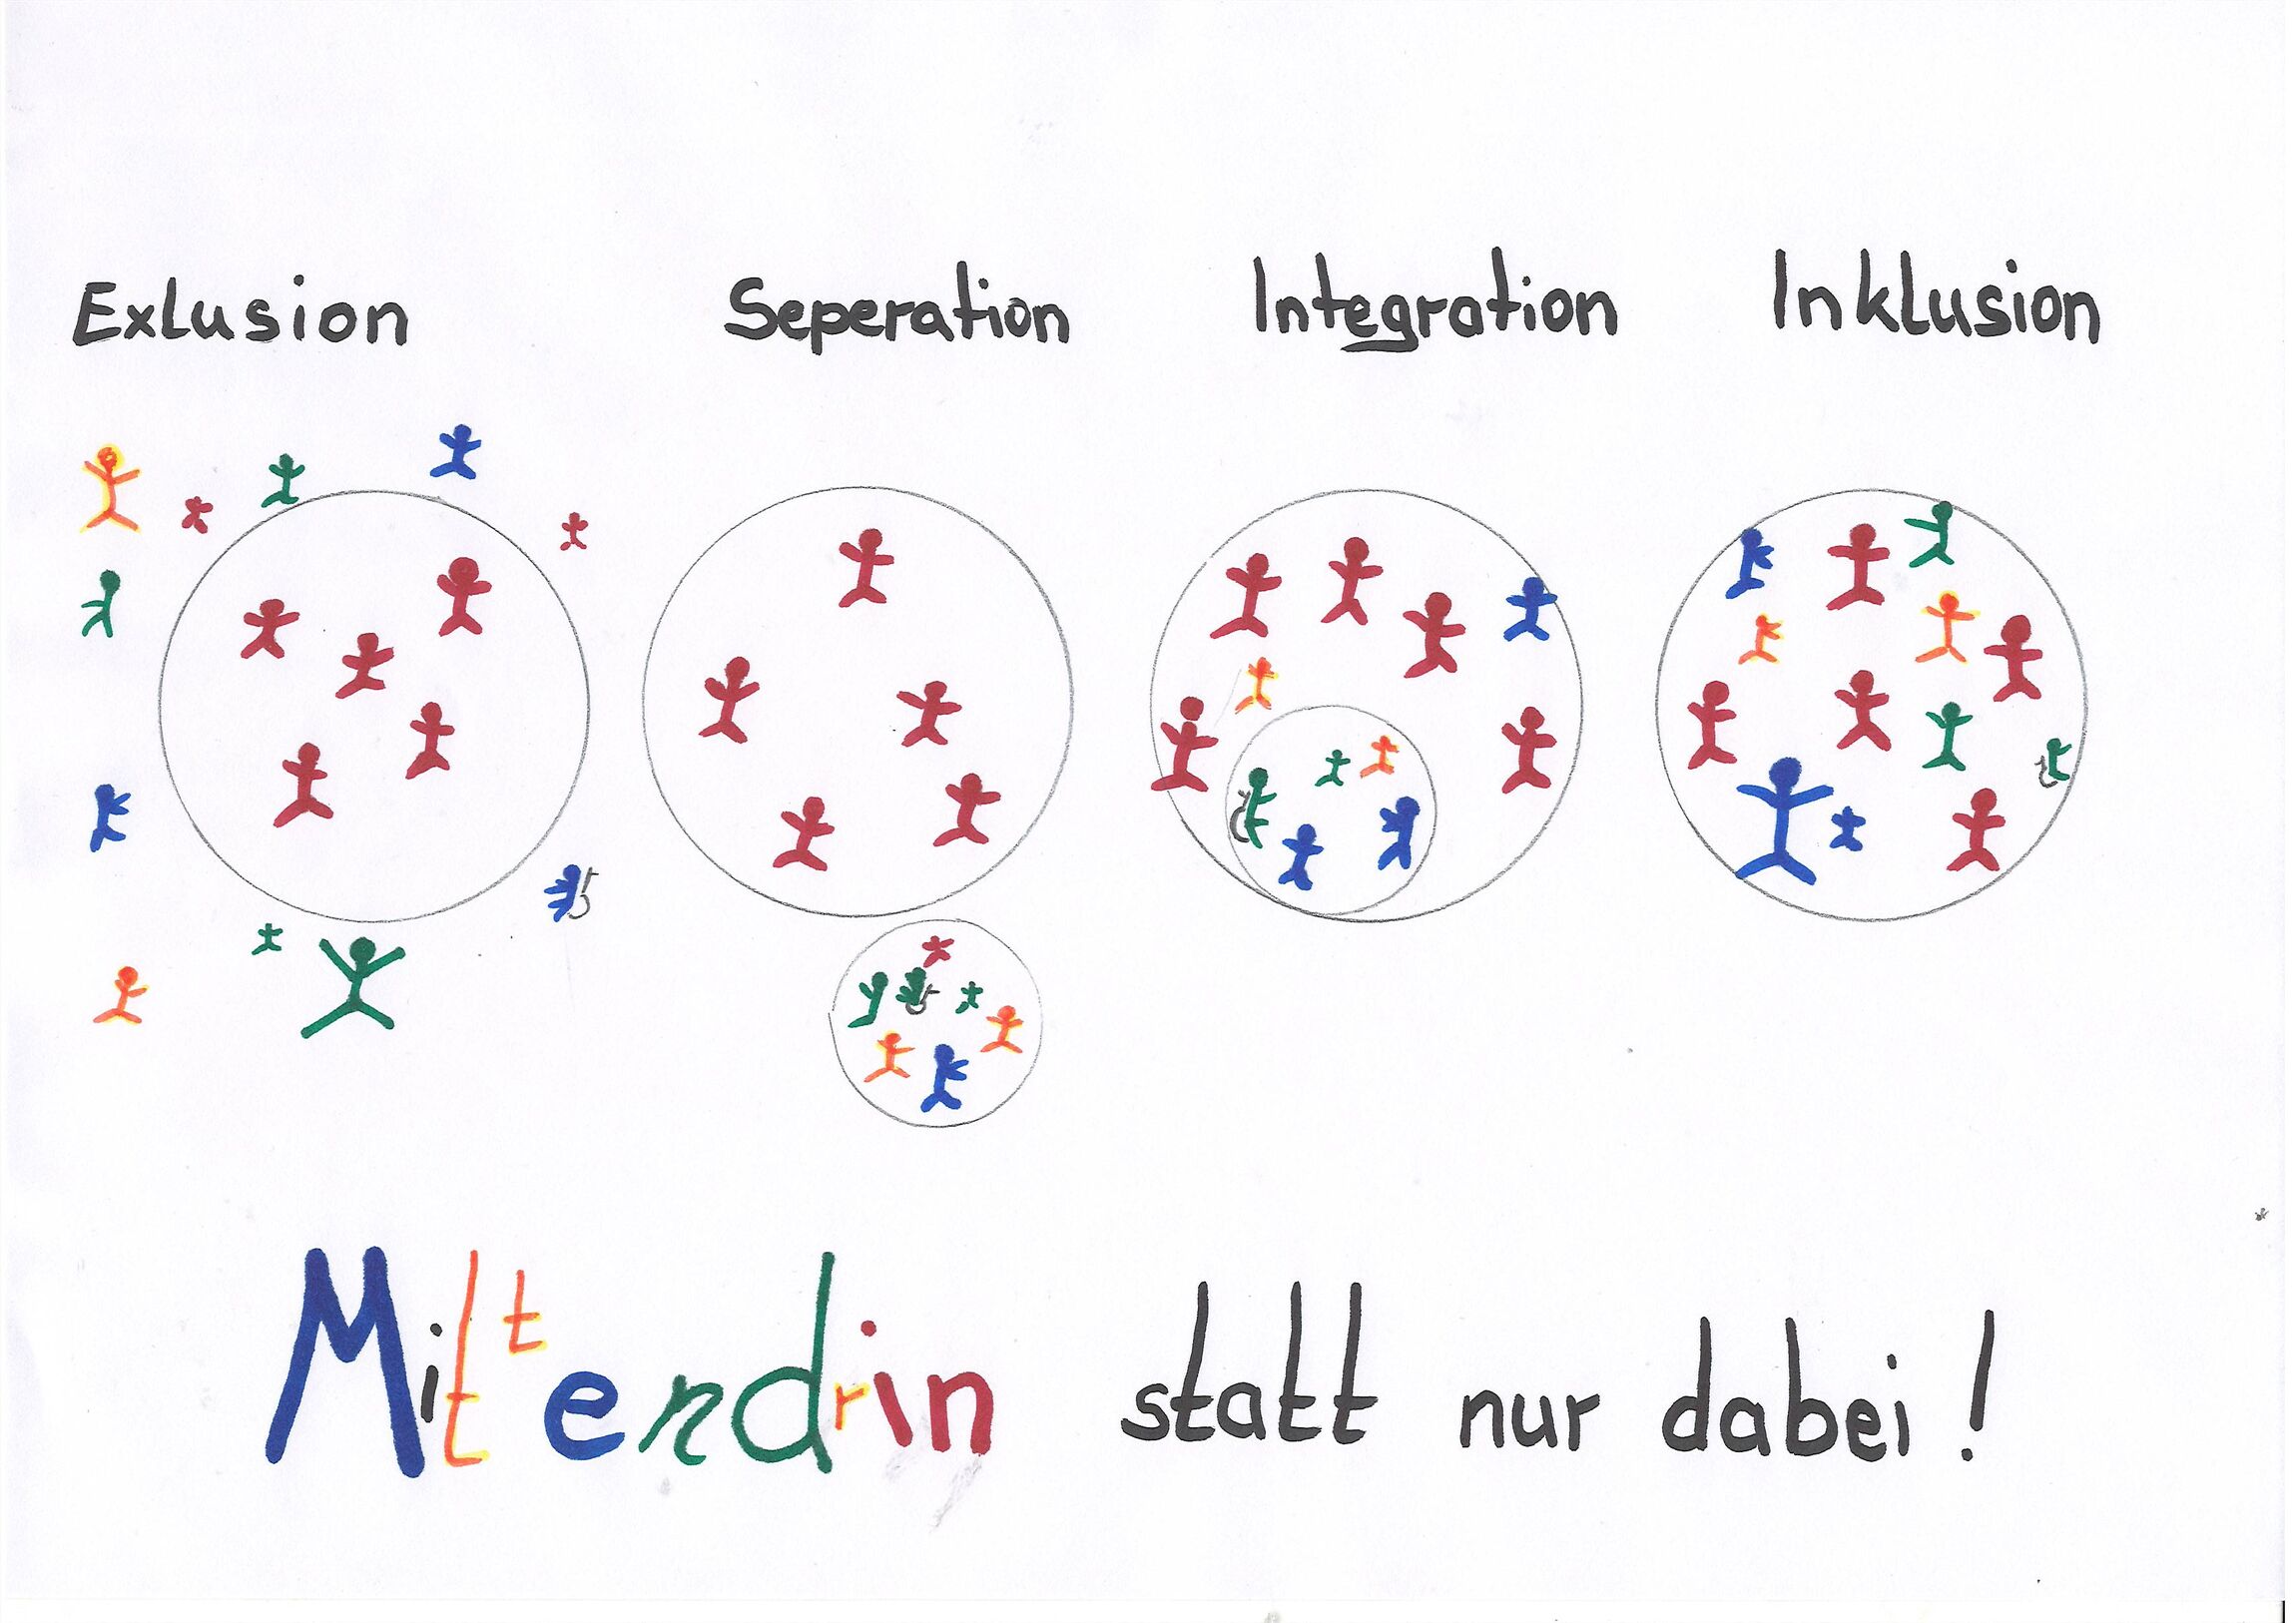 Exlusion Seperation Integration Inklusion
Mittendrin statt nur dabei!